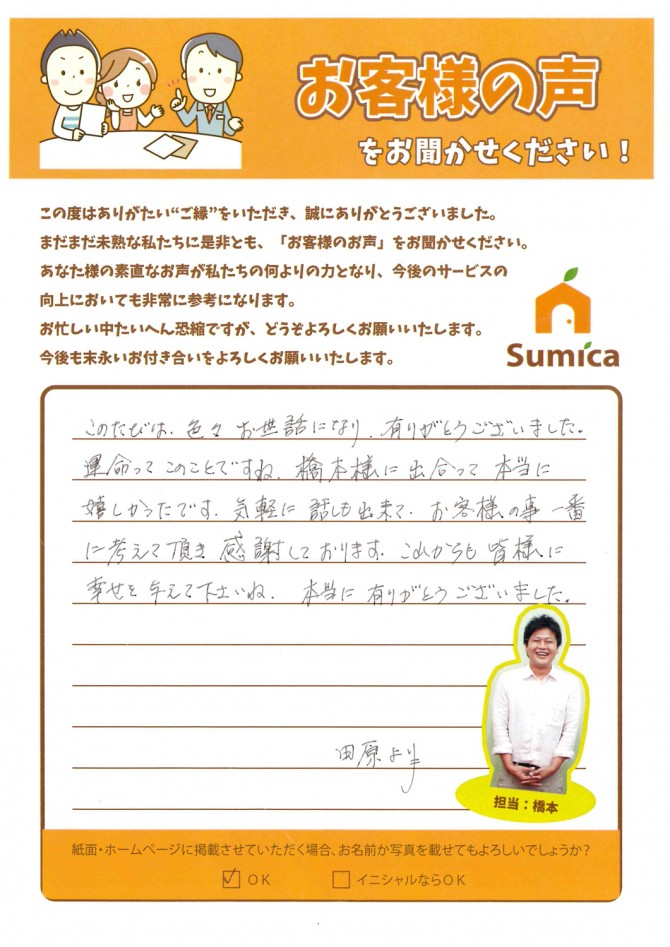 お客様の声
をお聞かせください！
この度はありがたい“ご縁”をいただき、誠にありがとうございました。
まだまだ未熟な私たちに是非とも、「お客様のお声」をお聞かせください。
あなた様の素直なお声が私たちの何よりの力となり、今後のサービスの
向上においても非常に参考になります。
お忙しい中たいへん恐縮ですが、どうぞよろしくお願いいたします。
今後も末永いお付き合いをよろしくお願いいたします。
Sumica
このたびは、色々お世話になり、有りがとうございました。
運命ってこのことですね。橋本様に出合って本当に
嬉しかったです。気軽に話しも出来て、お客様の事一番
に考えて頂き感謝しております。これからも皆様に
幸せを与えて下さいね。本当に有りがとうございました。
田原より
担当：橋本
紙面・ホームページに掲載させていただく場合、お名前か写真を載せてもよろしいでしょうか？
OK
イニシャルならOK